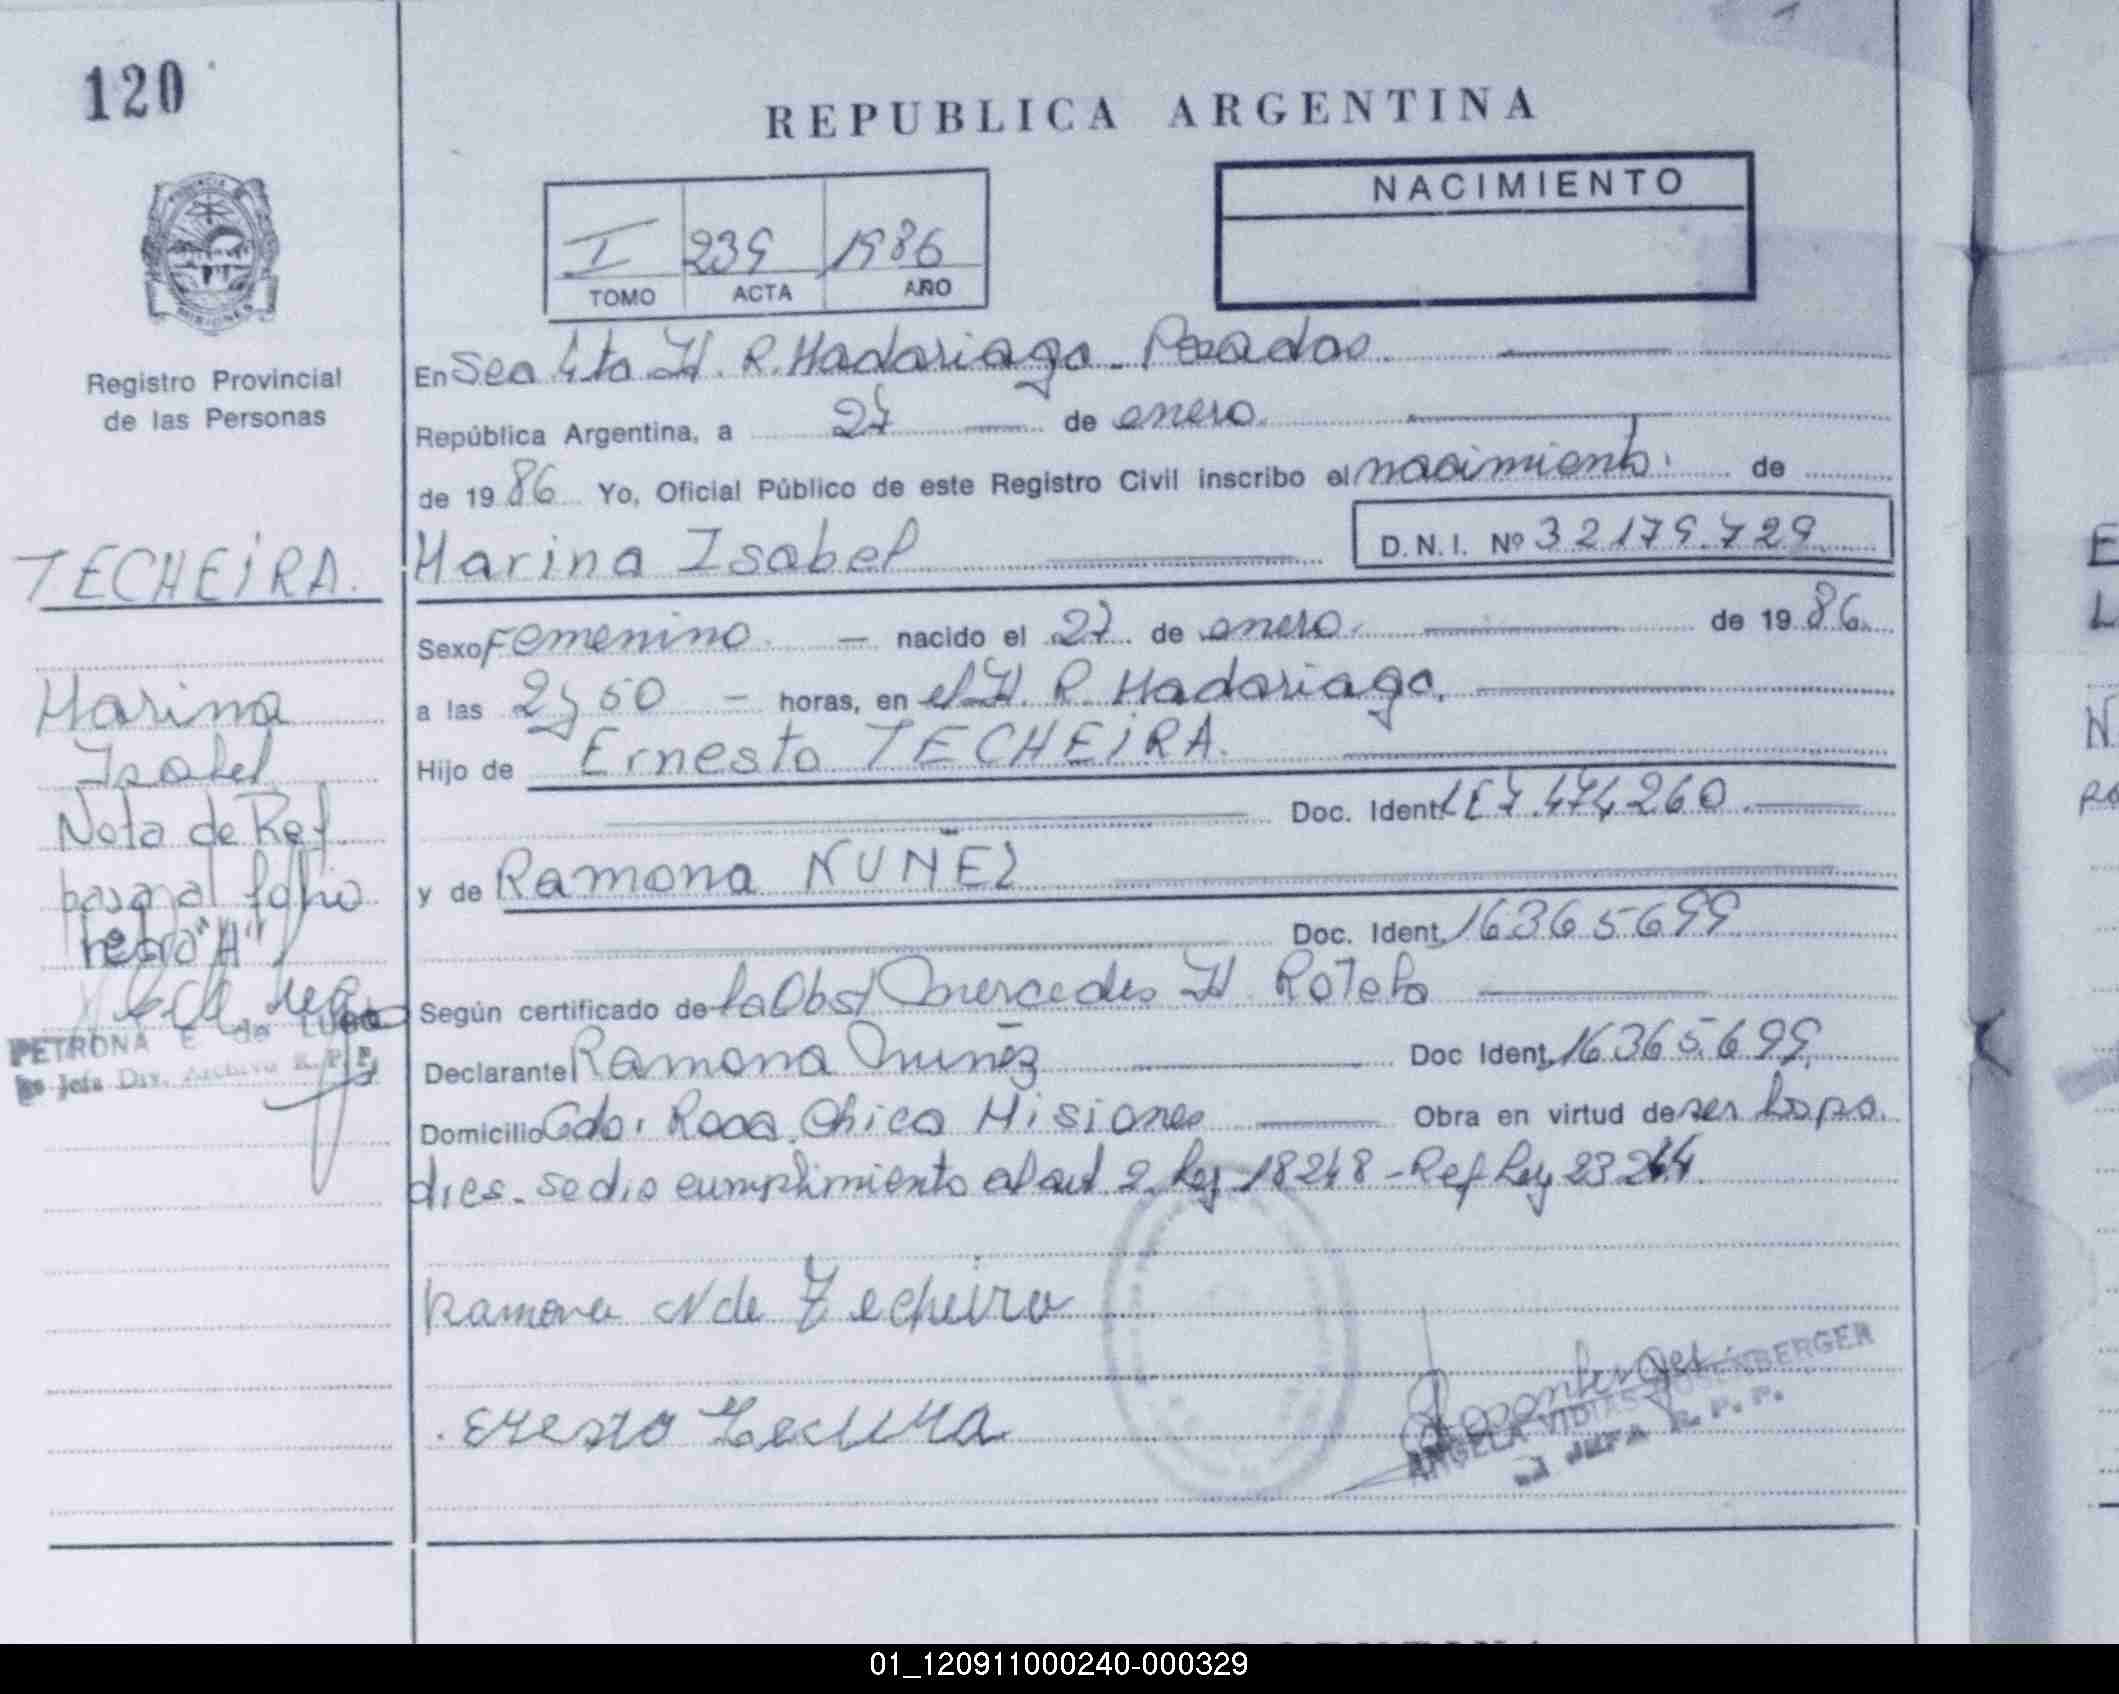 120
REPUBLICA ARGENTINA
NACIMIENTO
I 239 1986
TOMO ACTA AÑO
Registro Provincial
de las Personas
En Sec 4ta H. R. Madariaga - Posadas.
República Argentina, a 27 de enero.
de 1986 Yo, Oficial Público de este Registro Civil inscribo el nacimiento. de
TECHEIRA.
Marina Isabel D.N.I. Nº 32.179.729
Sexo Femenino. nacido el 27 de enero. de 1986.
a las 2,50 horas, en el H. R. Madariaga.
Marina
Isabel
Hijo de Ernesto TECHEIRA.
Doc. Ident. LE 7.474.260
Nota de Ref.
pasa al folio
"A"
y de Ramona NUÑEZ
Doc. Ident. 16365699
Según certificado de la Obst Mercedes H. Rotela
PETRONA E. de LUGO
Jefa Div. Archivo R.P.P.
Declarante Ramona Nuñez Doc Ident. 16365.699.
Domicilio Gdor Roca Chico Misiones Obra en virtud de ser
dres. se dio cumplimiento al art 2 Ley 18248 - Ref Ley 23264
Ramona N de Techeira
Ernesto Techeira
ANGELA VIDIA ROSENBERGER
JEFA R.P.P.
01_120911000240-000329